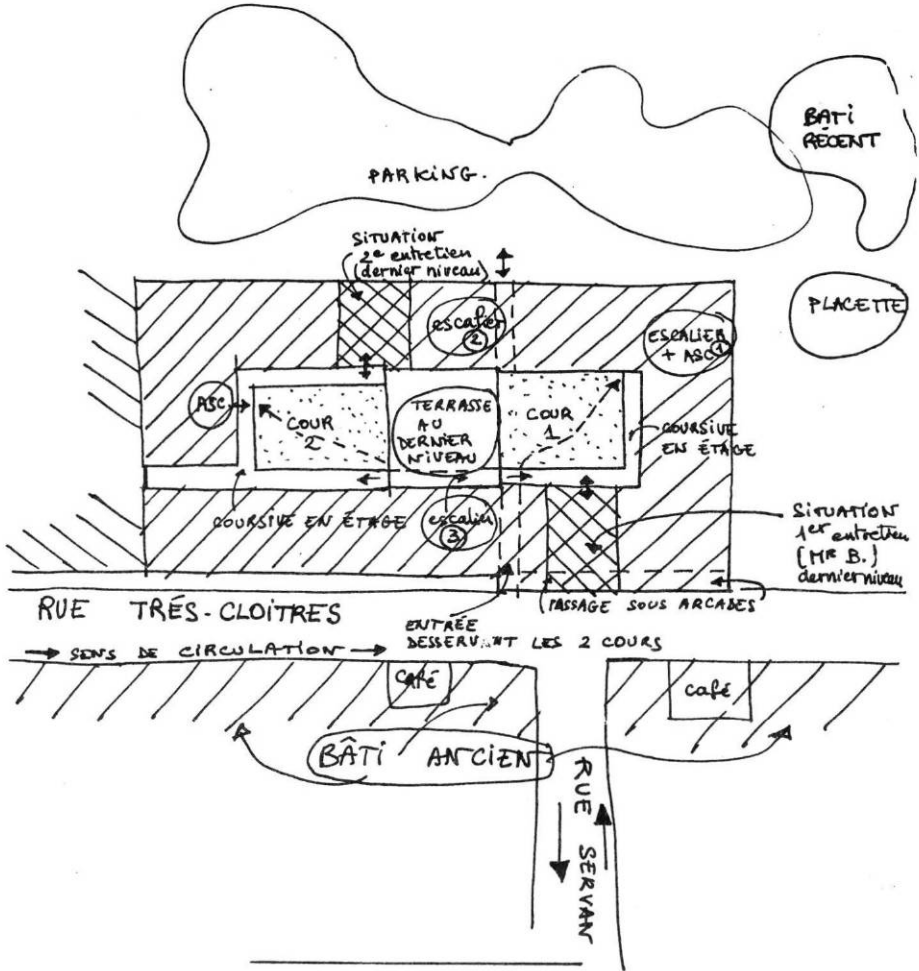 BATI
RÉCENT
PARKING.
SITUATION
2e entretien
(dernier niveau)
PLACETTE
escalier
2
ESCALIER
+ ASC 1
ASC
COUR
2
TERRASSE
AU
DERNIER
NIVEAU
COUR
1
COURSIVE
EN ÉTAGE
COURSIVE EN ÉTAGE
escalier
3
SITUATION
1er entretien
(MR B.)
dernier niveau
RUE TRÉS-CLOITRES
PASSAGE SOUS ARCADES
ENTRÉE
DESSERVANT LES 2 COURS
SENS DE CIRCULATION
café
café
BÂTI ANCIEN
RUE SERVAN